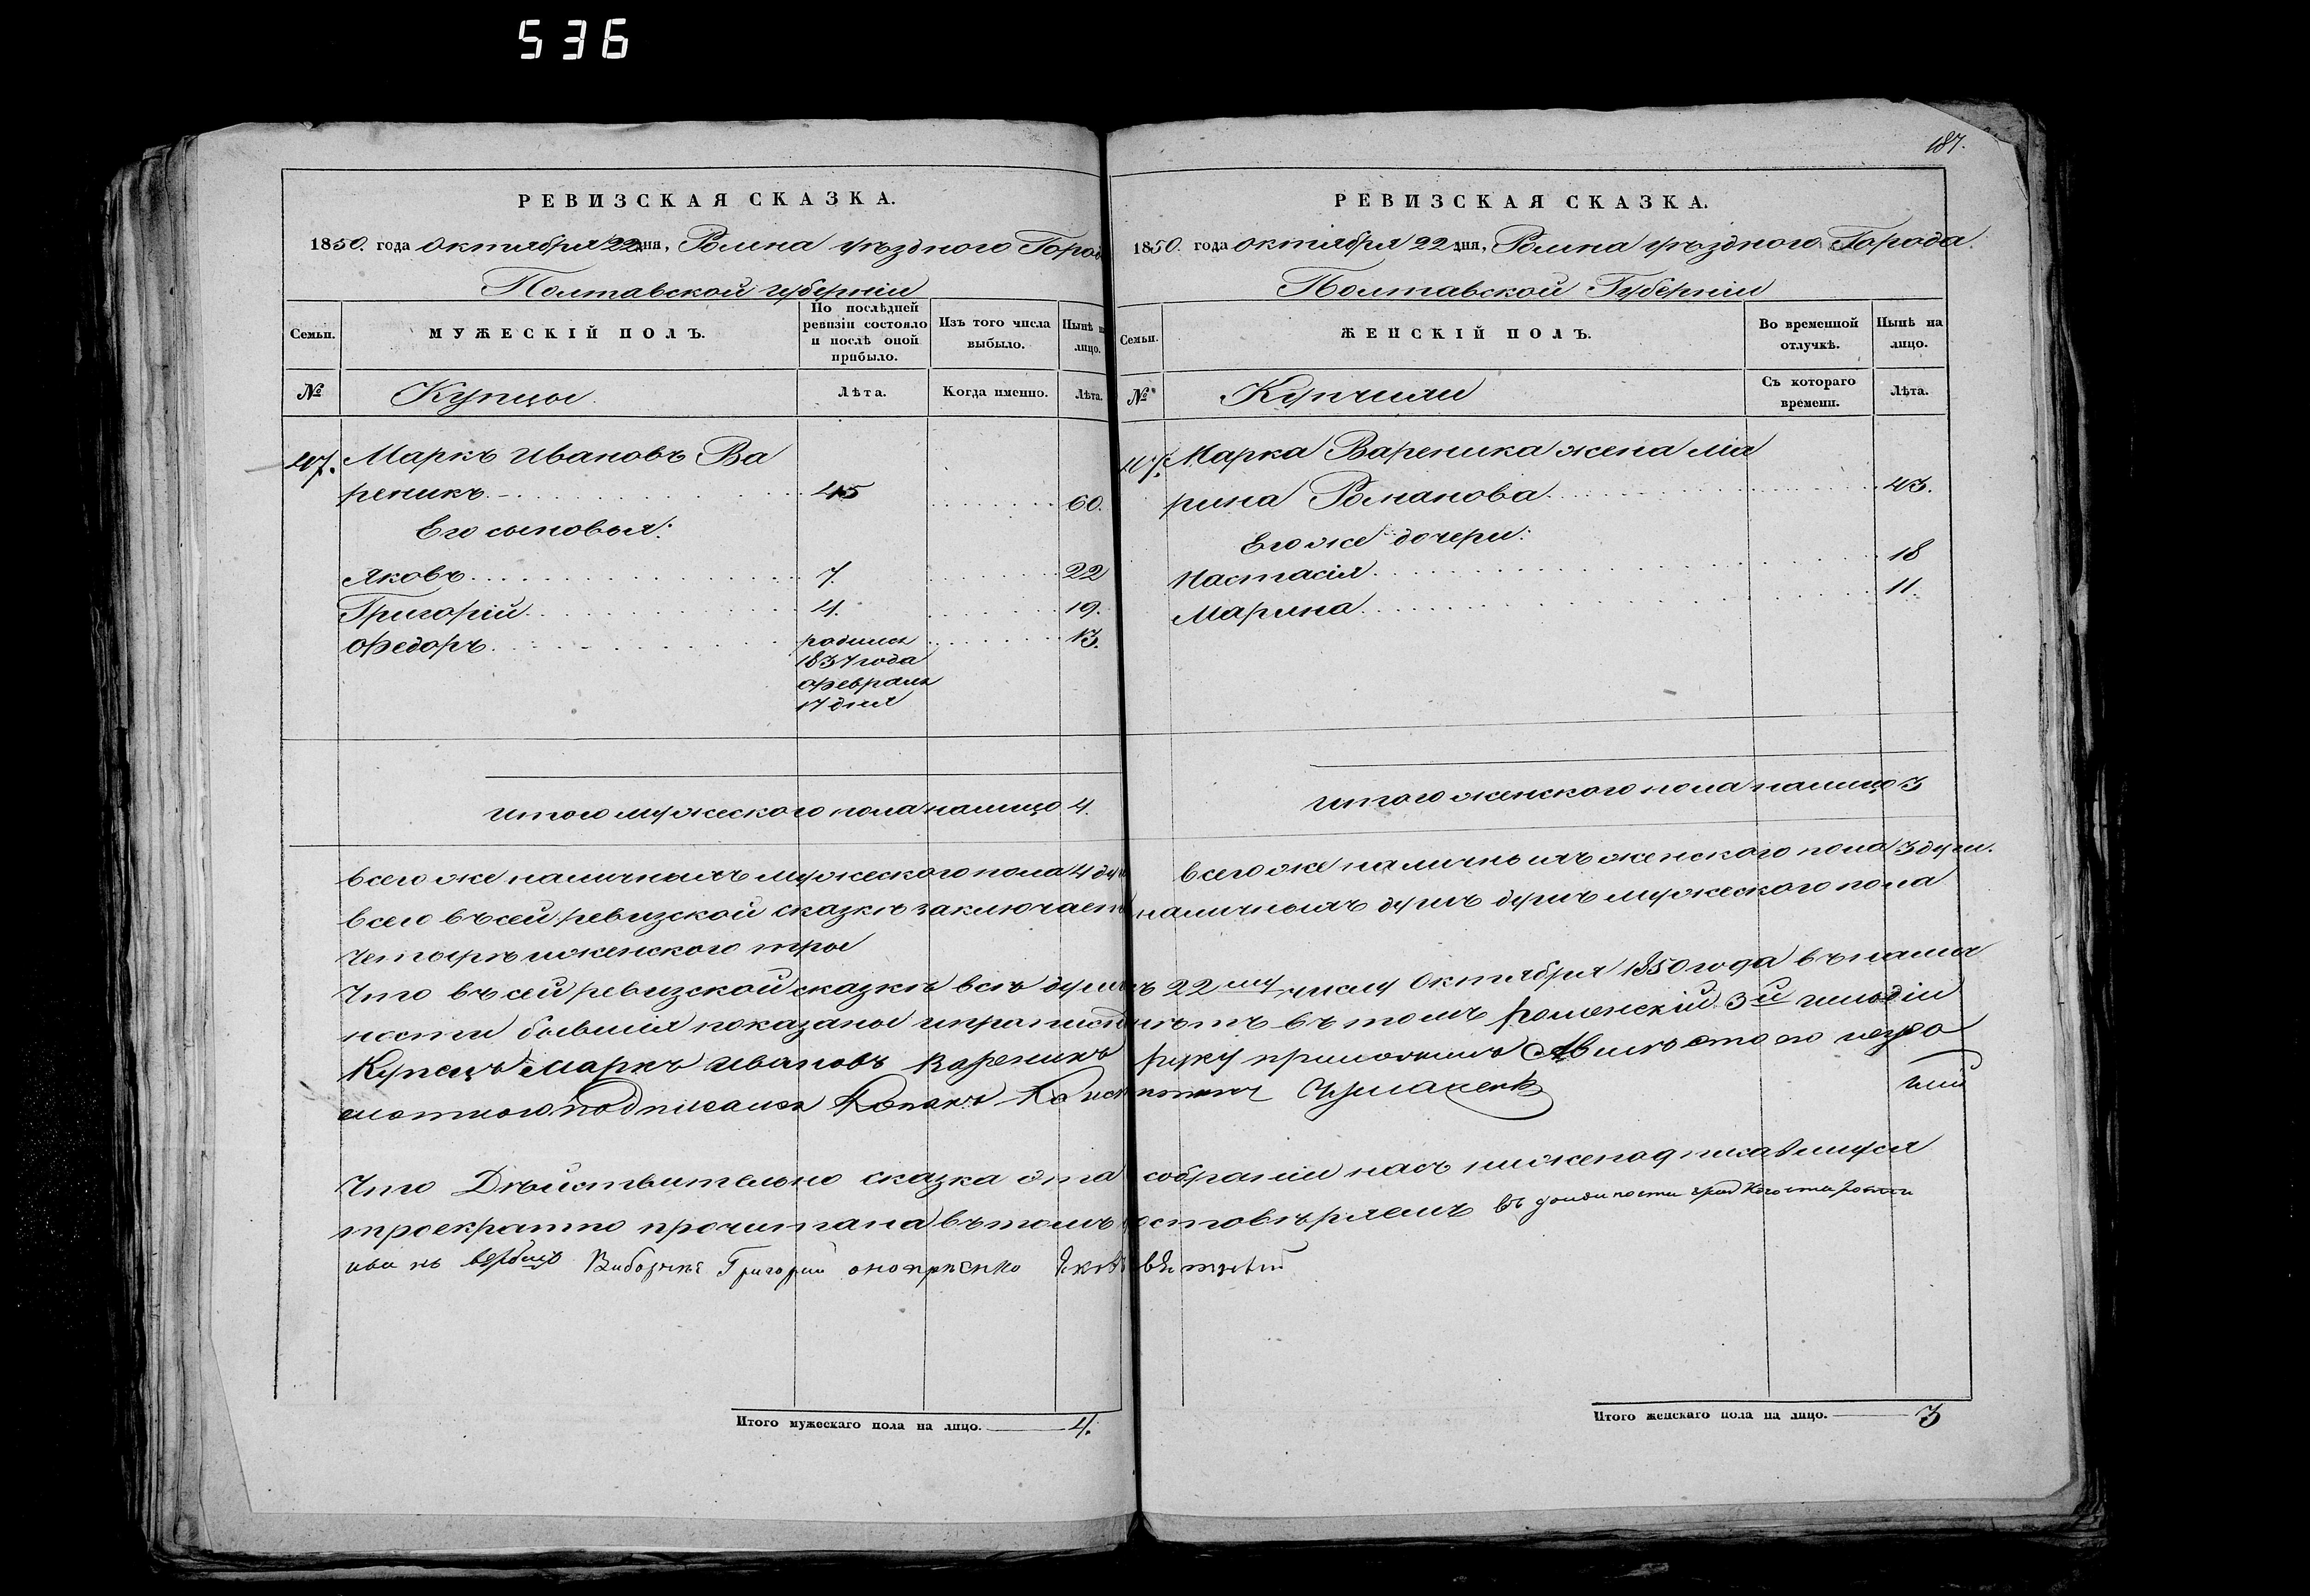 536
187.
РЕВИЗСКАЯ СКАЗКА.
1850. года октября 22 дня, Ромна уѣзднаго Город
Полтавской губерніи
Семьи.
МУЖЕСКІЙ ПОЛЪ.
По послѣдней ревизіи состояло и послѣ оной прибыло.
Изъ того числа выбыло.
Нынѣ на лицо.
№
Купцы.
Лѣта.
Когда именно.
Лѣта.
47. Маркъ Ивановъ Ва
реникъ 45 60.
Его сыновья:
Яковъ 7. 22
Григорій 4. 19.
Федоръ родился 13.
1837 года
февраля
17 дня
итого мужеского пола налицо 4.
всего же наличныхъ мужеского пола 4 ду
РЕВИЗСКАЯ СКАЗКА.
1850. года октября 22 дня, Ромна уѣздного Города
Полтавской Губерніи
Семьи.
ЖЕНСКІЙ ПОЛЪ.
Во временной отлучкѣ.
Нынѣ на лицо.
№
Купчихи
Съ котораго времени.
Лѣта.
47. Марка Вареника жена Ма
рина Романова 43.
Его же дочери:
Настасія 18
Марина 11.
итого женского пола налицо 3
всего же наличныхъ женского пола 3 души.
всего въ сей ревизской сказкѣ заключает наличныхъ душъ душъ мужеского пола
четыре и женского три
Что въ сей ревизской сказкѣ всѣ души къ 22му числу Октября 1850 года въ налич
ности бывшія показаны и прописныхъ нѣтъ въ томъ роменскій 3й гильдіи
Купецъ Маркъ Ивановъ Вареникъ руку приложилъ А вмѣсто его негра
мотного подписался
Что Дѣйствительно сказка эта собраніи насъ нижеподписавшихся
троекратно прочитана въ томъ достовѣряемъ въ должности град
Григорий
Итого мужескаго пола на лицо. 4.
Итого женскаго пола на лицо. 3